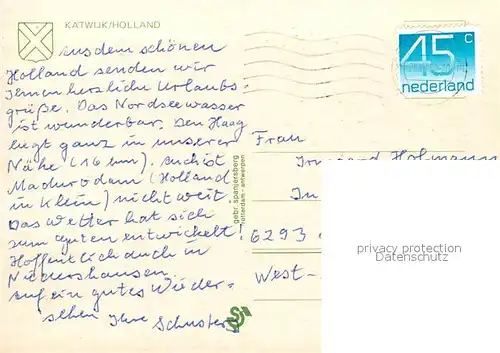 KATWIJK/HOLLAND
Aus dem schönen
Holland senden wir
Ihnen herzliche Urlaubs-
grüße. Das Nordseewasser
ist wunderbar. Den Haag
liegt ganz in unserer
Nähe (16 km). Auch ist
Madurodam (Holland
in Klein) nicht weit.
Das Wetter hat sich
zum guten entwickelt!
Hoffentlich auch in
Niedershausen.
Auf ein gutes Wieder-
sehen Ihre Schusters
gebr. spanjersberg
rotterdam - antwerpen
45 c
nederland
Frau
Hofmann
In
6293
West-
privacy protection
Datenschutz